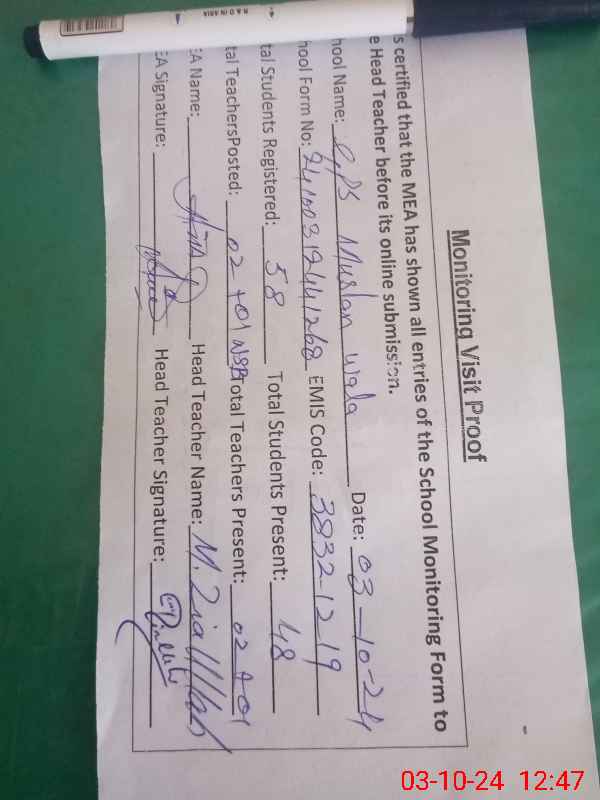 Monitoring Visit Proof
s certified that the MEA has shown all entries of the School Monitoring Form to
e Head Teacher before its online submission.
hool Name: GPS Muslan Wala Date: 03-10-24
hool Form No: EMIS Code: 38321219
tal Students Registered: 58 Total Students Present: 48
tal TeachersPosted: 02+01 NSB Total Teachers Present: 02+01
EA Name: Head Teacher Name: M. Zia Ullah
EA Signature: Head Teacher Signature:
03-10-24 12:47